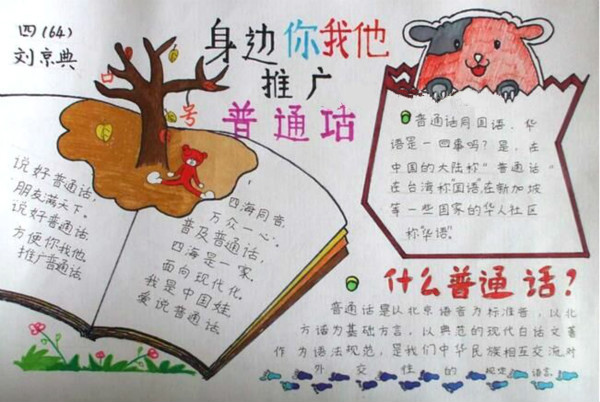 四(64)
刘京典
身边你我他
推广
普通话
号
说好普通话,
朋友满天下。
说好普通话,
方便你我他,
推广普通话。
四海同音,
万众一心。
普及普通话,
四海是一家。
面向现代化,
我是中国娃,
爱说普通话。
普通话同国语、华
语是一回事吗?是,在
中国的大陆称"普通话"
在台湾称"国语"在新加坡
等一些国家的华人社区
称"华语"。
什么普通话?
普通话是以北京语音为标准音,以北
方话为基础方言,以典范的现代白话文著
作为语法规范,是我们中华民族相互交流对
外交性的规定语言.